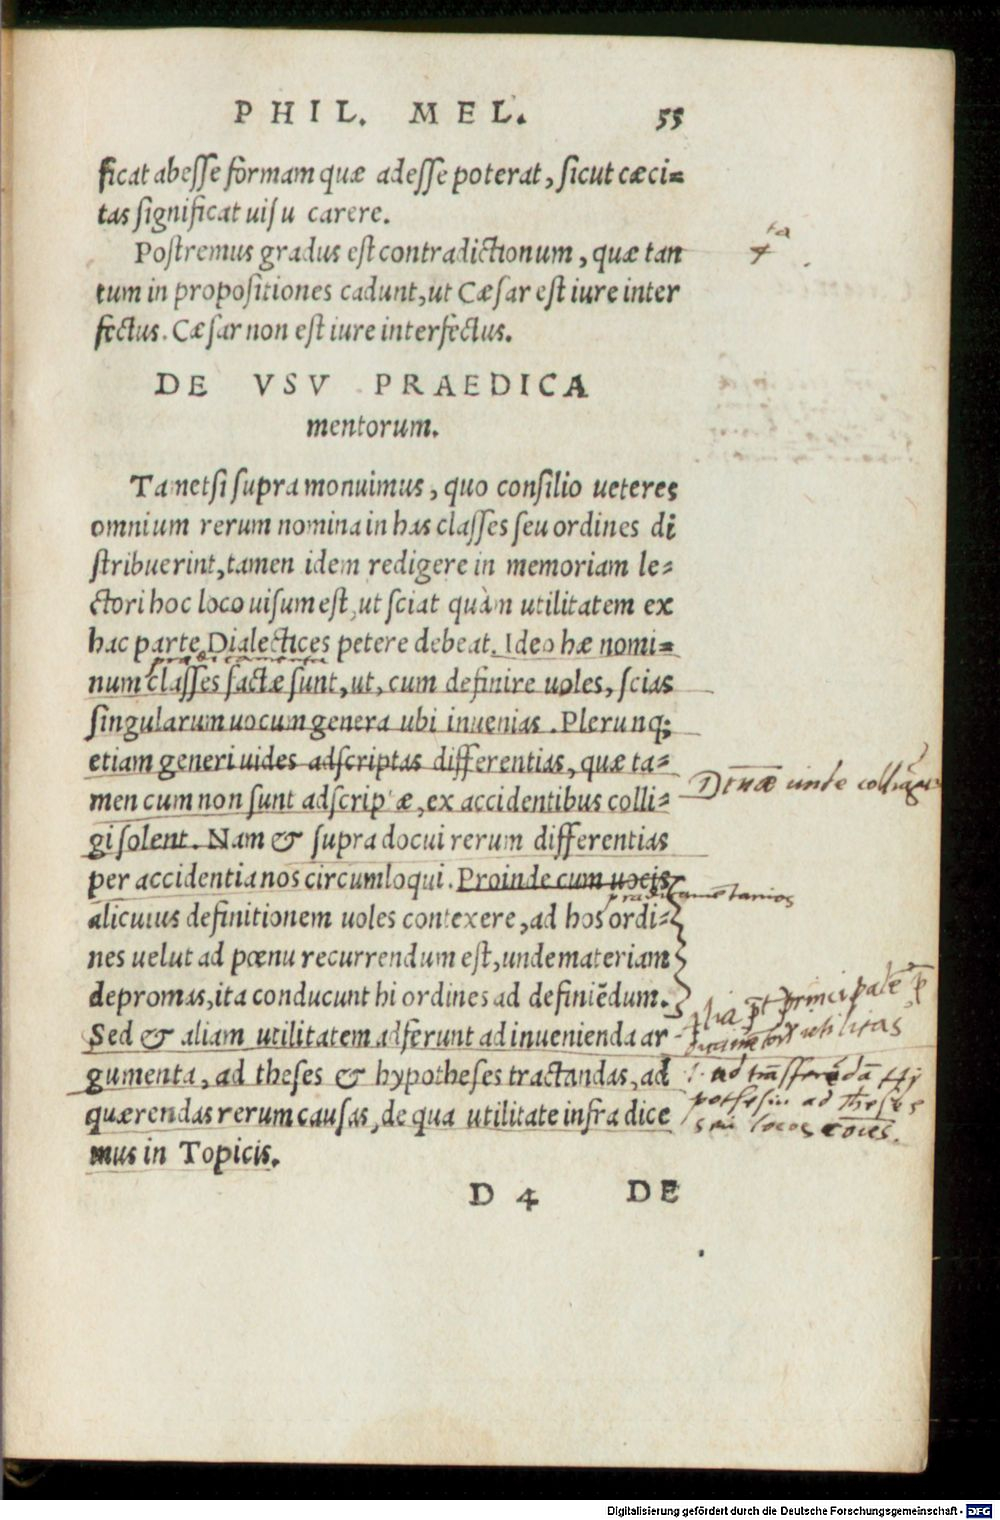 PHIL. MEL. 55
ficat abesse formam quæ adesse poterat, sicut cæci=
tas significat uisu carere.
Postremus gradus est contradictionum, quæ tan
tum in propositiones cadunt, ut Cæsar est iure inter
fectus. Cæsar non est iure interfectus.
4ta
DE VSV PRAEDICA
mentorum.
Tametsi supra monuimus, quo consilio ueteres
omnium rerum nomina in has classes seu ordines di
stribuerint, tamen idem redigere in memoriam le=
ctori hoc loco uisum est, ut sciat quàm utilitatem ex
hac parte Dialectices petere debeat. Ideo hæ nomi=
prædicamenta
num classes factæ sunt, ut, cum definire uoles, scias
singularum uocum genera ubi inuenias. Plerunq;
etiam generi uides adscriptas differentias, quæ ta=
men cum non sunt adscriptæ, ex accidentibus colli=
unde
gi solent. Nam & supra docui rerum differentias
per accidentia nos circumloqui. Proinde cum uocis
alicuius definitionem uoles contexere, ad hos ordi=
nes uelut ad pœnu recurrendum est, unde materiam
depromas, ita conducunt hi ordines ad definiēdum.
Sed & aliam utilitatem adferunt ad inuenienda ar
gumenta, ad theses & hypotheses tractandas, ad
quærendas rerum causas, de qua utilitate infra dice
mus in Topicis.
utilitas
ad theses
seu locos
D 4 DE
Digitalisierung gefördert durch die Deutsche Forschungsgemeinschaft - DFG